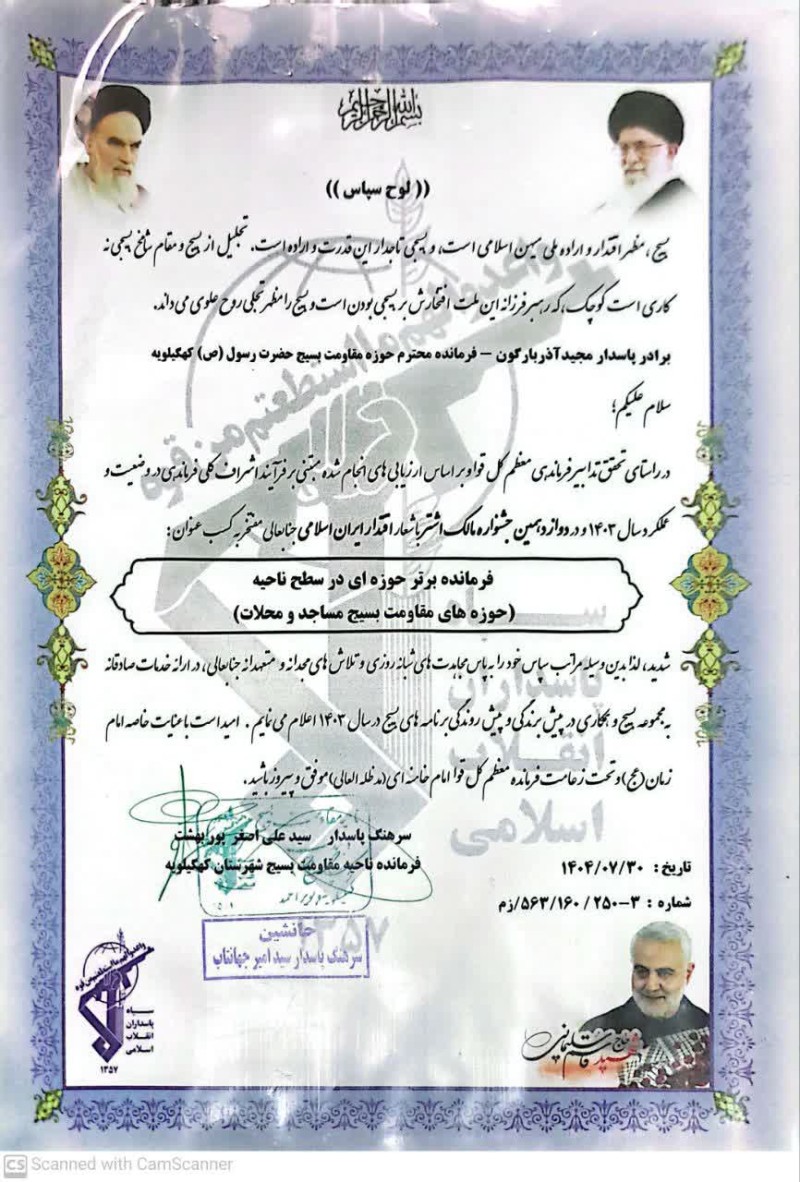 بسم الله الرحمن الرحیم
(( لوح سپاس ))
بسیج ، مظهر اقتدار و اراده ملی میهن اسلامی است، و بسیجی تاجدار این قدرت و اراده است. تجلیل از بسیج و مقام شامخ بسیجی نه
کاری است کوچک، که رهبر فرزانه این ملت افتخارش بر بسیجی بودن است و بسیج را مظهر تجلی روح علوی می داند.
برادر پاسدار مجید آذربارگون – فرمانده محترم حوزه مقاومت بسیج حضرت رسول (ص) کهگیلویه
سلام علیکم؛
در راستای تحقق تدابیر فرماندهی معظم کل قوا و بر اساس ارزیابی های انجام شده مبتنی بر فرآیند اشراف کلی فرماندهی در وضعیت و
عملکرد سال ۱۴۰۳ و در دوازدهمین جشنواره مالک اشتر با شعار اقتدار ایران اسلامی جنابعالی مفتخر به کسب عنوان :
فرمانده برتر حوزه ای در سطح ناحیه
(حوزه های مقاومت بسیج مساجد و محلات)
شدید، لذا بدین وسیله مراتب سپاس خود را به پاس مجاهدت های شبانه روزی و تلاش های مجدانه و متعهدانه جنابعالی، در ارائه خدمات صادقانه
به مجموعه بسیج و همکاری در پیش برندگی و پیش روندگی برنامه های بسیج در سال ۱۴۰۳ اعلام می نمایم . امید است با عنایت خاصه امام
زمان (عج) و تحت زعامت فرمانده معظم کل قوا امام خامنه ای (مدظله العالی) موفق و پیروز باشید.
سرهنگ پاسدار سید علی اصغر پور بهشت
فرمانده ناحیه مقاومت بسیج شهرستان کهگیلویه
تاریخ : ۱۴۰۴/۰۷/۳۰
شماره : ۳-۲۵۰ / ۵۶۳/۱۶۰/زم
جانشین
سرهنگ پاسدار سید امیر جهانتاب
سپاه
پاسداران
انقلاب
اسلامی
۱۳۵۷
واعدوا لهم ما استطعتم من قوة
سپاه
پاسداران
انقلاب
اسلامی
۱۳۵۷
شهید حاج قاسم سلیمانی
CS Scanned with CamScanner